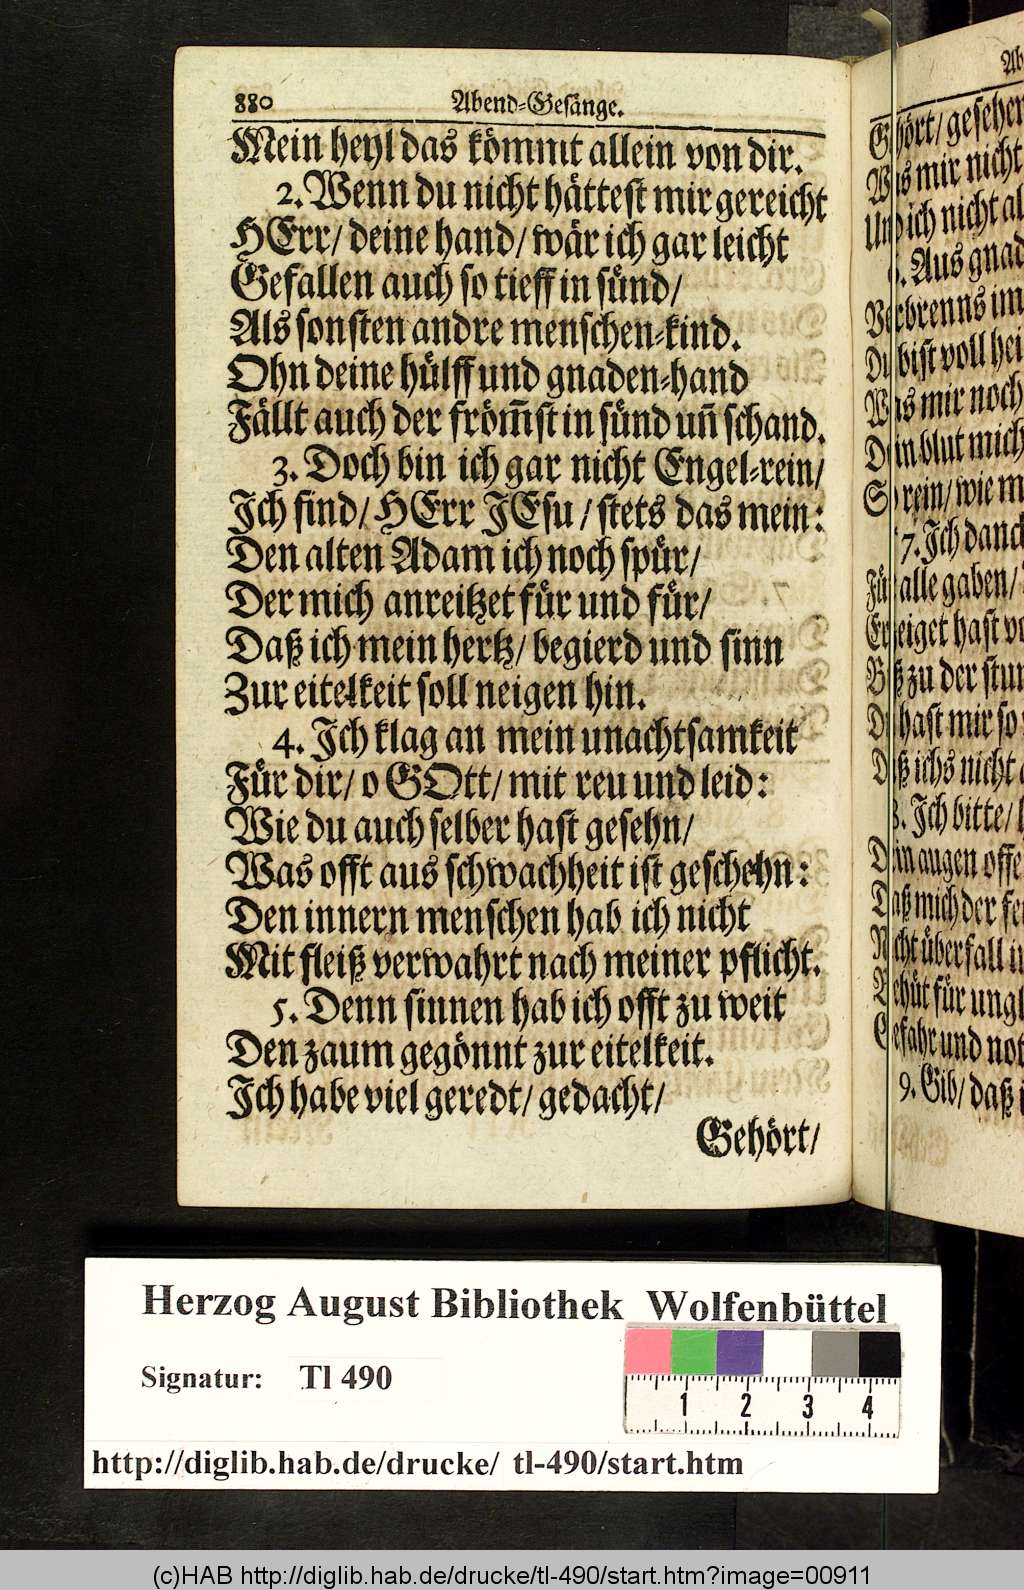 880 Abend-Gesänge.
Mein heyl das kömmt allein von dir.
2. Wenn du nicht hättest mir gereicht
HErr/ deine hand/ wär ich gar leicht
Gefallen auch so tieff in sünd/
Als sonsten andre menschen-kind.
Ohn deine hülff und gnaden-hand
Fällt auch der from̃st in sünd uñ schand.
3. Doch bin ich gar nicht Engel-rein/
Ich find/ HErr JEsu/ stets das mein:
Den alten Adam ich noch spür/
Der mich anreitzet für und für/
Daß ich mein hertz/ begierd und sinn
Zur eitelkeit soll neigen hin.
4. Ich klag an mein unachtsamkeit
Für dir/ o GOtt/ mit reu und leid:
Wie du auch selber hast gesehn/
Was offt aus schwachheit ist geschehn:
Den innern menschen hab ich nicht
Mit fleiß verwahrt nach meiner pflicht.
5. Denn sinnen hab ich offt zu weit
Den zaum gegönnt zur eitelkeit.
Ich habe viel geredt/ gedacht/
Gehört/
Gehört/ gesehen
Was mir nicht
Und ich nicht
Aus gnad
Verbrenns im
Du bist voll
Was mir noch
Dein blut mich
So rein/ wie
7. Ich danck
Für alle gaben/
hast
Biß zu der
Du hast mir so
Daß ichs nicht
8. Ich bitte/
Dein augen
Daß mich der
Nicht überfall
Behüt für
Gefahr und
9. Gib/ daß
Herzog August Bibliothek Wolfenbüttel
Signatur: Tl 490
1 2 3 4
http://diglib.hab.de/drucke/ tl-490/start.htm
(c)HAB http://diglib.hab.de/drucke/tl-490/start.htm?image=00911